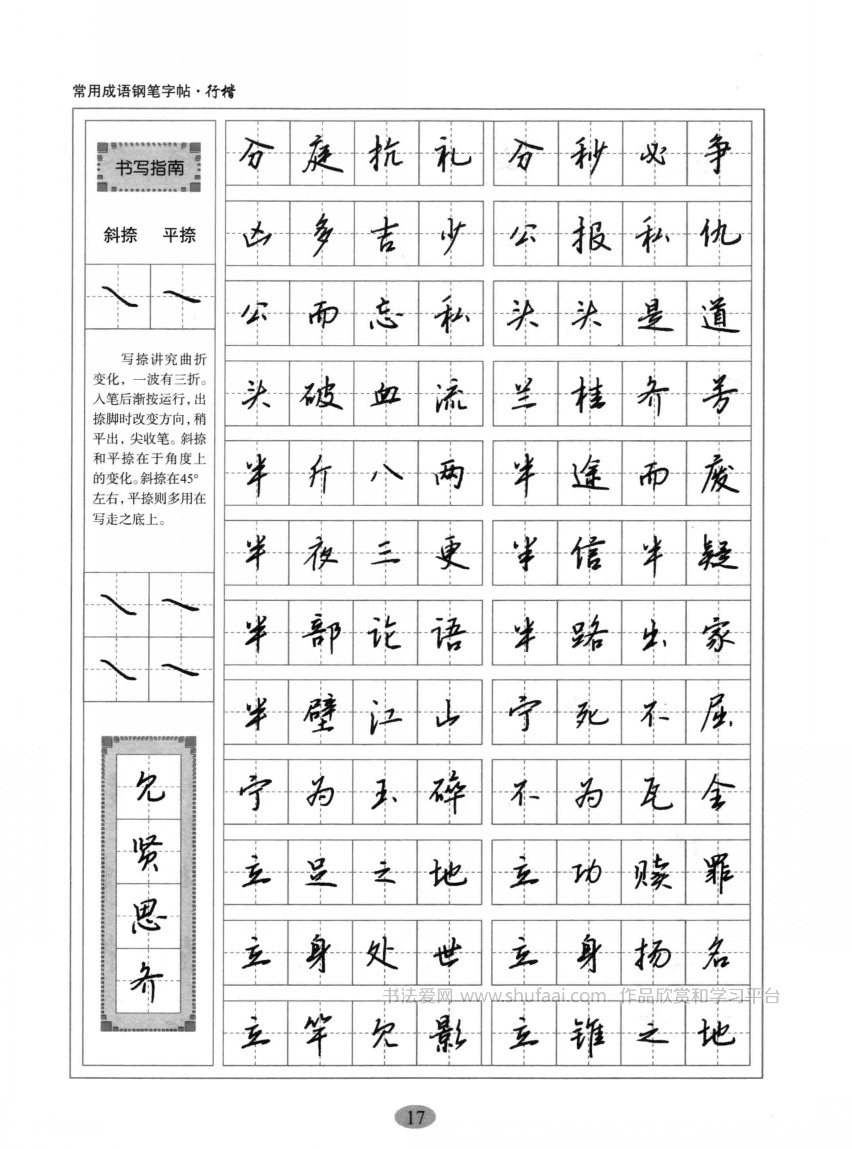 常用成语钢笔字帖·行楷
书写指南
斜捺 平捺
写捺讲究曲折
变化，一波有三折。
入笔后渐按运行，出
捺脚时改变方向，稍
平出，尖收笔。斜捺
和平捺在于角度上
的变化。斜捺在45°
左右，平捺则多用在
写走之底上。
见
贤
思
齐
分庭抗礼 分秒必争
凶多吉少 公报私仇
公而忘私 头头是道
头破血流 兰桂齐芳
半斤八两 半途而废
半夜三更 半信半疑
半部论语 半路出家
半壁江山 宁死不屈
宁为玉碎 不为瓦全
立足之地 立功赎罪
立身处世 立身扬名
立竿见影 立锥之地
书法爱网 www.shufaai.com 作品欣赏和学习平台
17